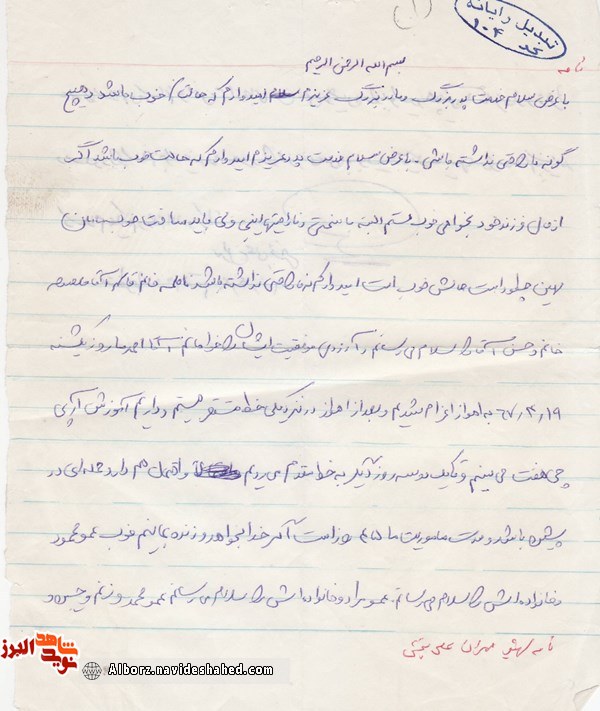 (۱)
تبدیل رایانه
نجد ۱۰۴
نامه
بسم الله الرحمن الرحیم
با عرض سلام خدمت پدربزرگ و مادربزرگ عزیزم سلام امیدوارم که حالتان خوب باشد و هیچ
گونه ناراحتی نداشته باشی. با عرض سلام خدمت پدر عزیزم امیدوارم که حالت خوب باشد اگر
از حال فرزند خود بخواهی خوب هستم البته با سختی و ناراحتیهای اینجا ولی باید ساخت
بهمن چطور است حالش خوب است امیدوارم که ناراحتی نداشته باشد فاطمه خانم آقا معصومه
خانم و حسن آقا را سلام می رسانم و آرزوی موفقیت ایشان را خواهانم ما روز یکشنبه
۶۷٫۴٫۱۹ به اهواز اعزام شدیم و بعد از اهواز در نزدیکی خط مستقر هستیم و داریم آموزش آرپی
جی هفت می بینیم و تا یک دو سه روز دیگر به خط مقدم می رویم و احتمال هم دارد حمله ای در
پیش باشد و مدت ماموریت ما ۴۵ روز است اگر خدا بخواهد و زنده بمانیم خوب عمو محمود
و خانواده اش را سلام می رسانم عمو مراد و خانواده اش را سلام می رسانم عمو محمد و زنم و
نامه شهید مهران علی
نوید شاهد البرز
Alborz.navideshahed.com